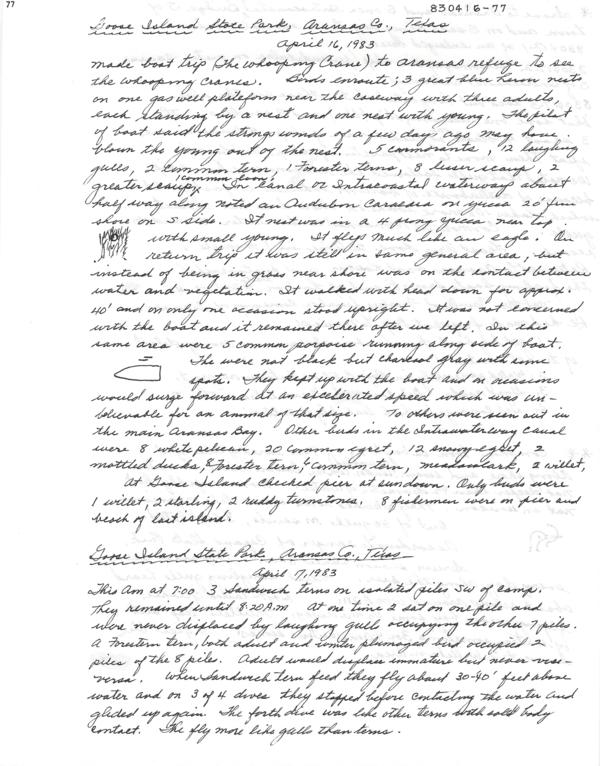 77
830416-77
Goose Island State Park, Aransas Co., Texas
April 16, 1983
made boat trip (The Whooping Crane) to Aransas refuge to see
the whooping cranes. Birds enroute; 3 great blue heron nests
on one gas well plateform near the causway with three adults,
each standing by a nest and one nest with young. The pilot
of boat said the strong winds of a few day ago may have
blown the young out of the nest. 5 cormorants, 12 laughing
gulls, 2 common tern, 1 Forester terns, 8 lesser scaup, 2
greater scaup, 1 common loon, In canal or Intracoastal waterway about
half way along noted an Audubon Caracara on yucca 20' from
shore on S side. It nest was in a 4 prong yucca near top
with small young. It flys much like an eagle. On
return trip it was still in same general area, but
instead of being in grass near shore was on the contact between
water and vegetation. It walked with head down for approx.
40' and on only one occasion stood upright. It was not concerned
with the boat and it remained there after we left. In this
same area were 5 common porpoise running along side of boat.
The were not black but charcoal gray with some
spots. They kept up with the boat and on occasions
would surge forward at an excelerated speed which was un-
bleivable for an animal of that size. To others were seen out in
the main Aransas Bay. Other birds in the Intrawaterway Canal
were 8 white pelican, 20 common egret, 12 snowy egret, 2
mottled ducks, Forester tern, common tern, meadowlark, 2 willet,
At Goose Island checked pier at sundown. Only birds were
1 willet, 2 starling, 2 ruddy turnstones. 8 fishermen were on pier and
beach of last island.
Goose Island State Park, Aransas Co., Texas
April 17, 1983
This Am at 7:00 3 Sandwich terns on isolated piles SW of camp.
They remained until 8:20 A.M At one time 2 sat on one pile and
were never displaced by laughing gull occupying the other 7 piles.
A Foresters tern, both adult and winter plumaged bird occupied 2
piles of the 8 piles. Adult would displace immature but never vise-
versa. When Sandwich tern feed they fly about 30-40' feet above
water and on 3 of 4 dives they stopped before contacting the water and
glided up again. The forth dive was like other terns with solid body
contact. The fly more like gulls than terns.